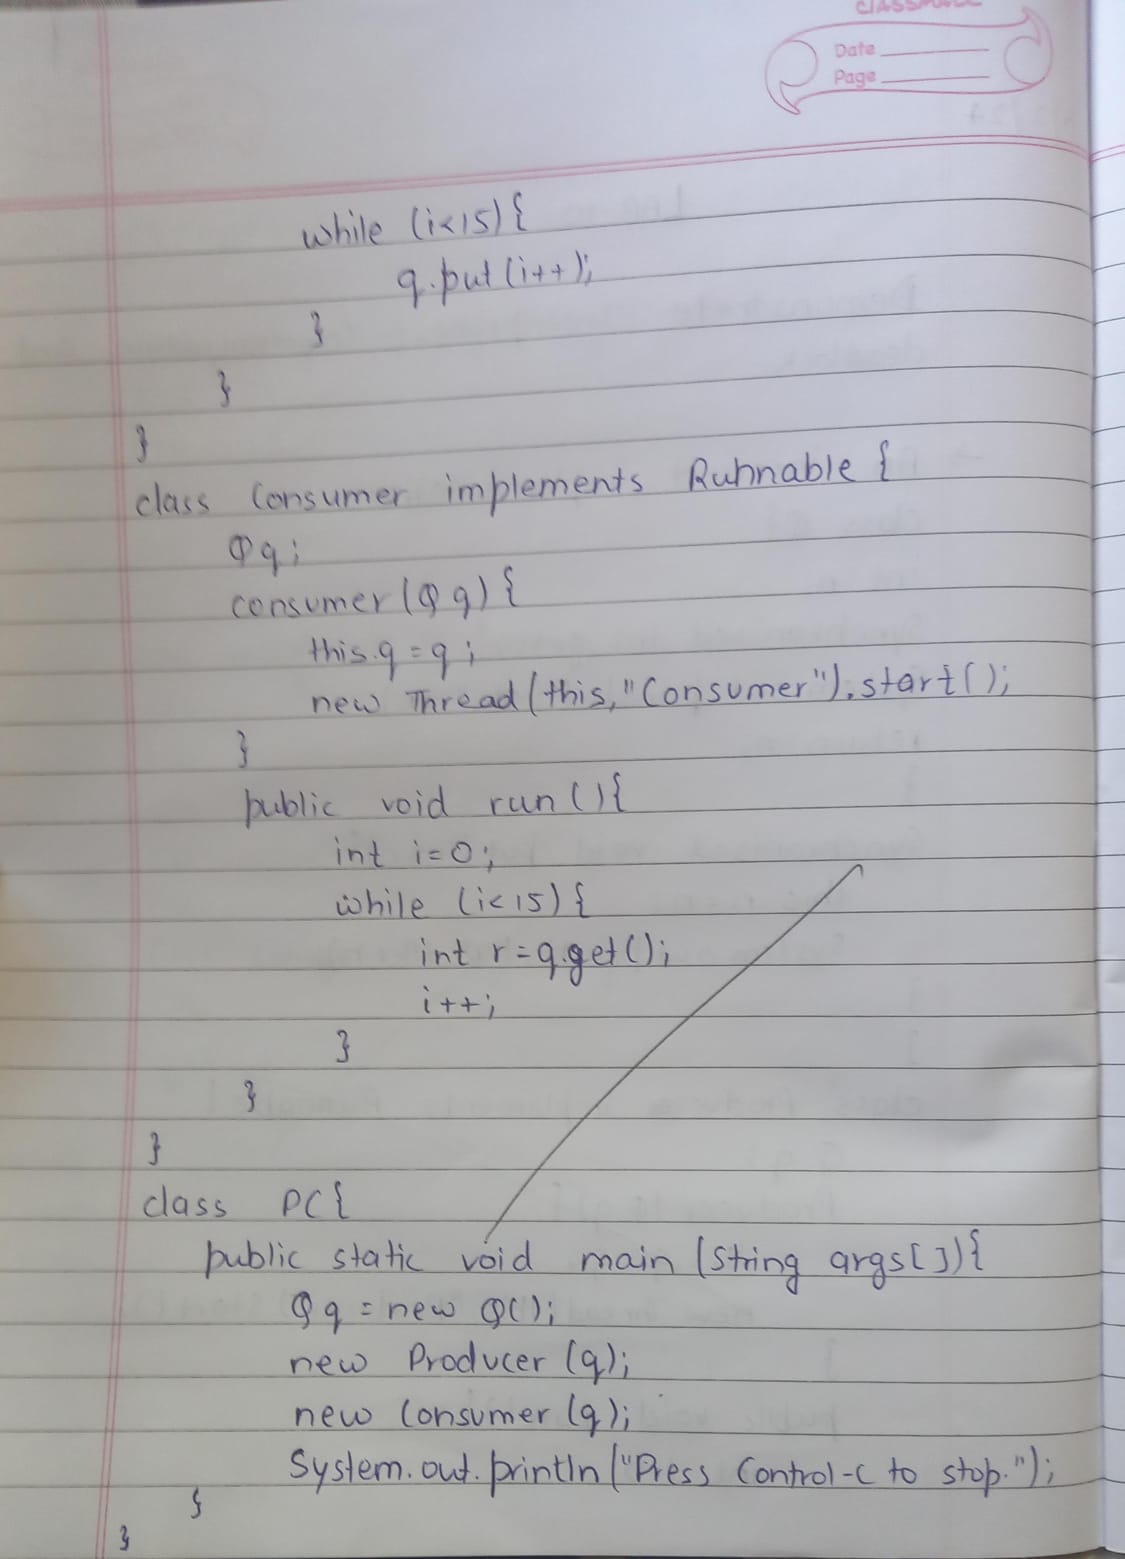 classmate
Date
Page
while (i<15){
q.put(i++);
}
}
}
class Consumer implements Runnable {
Q q;
consumer(Q q){
this.q = q;
new Thread(this,"Consumer").start();
}
public void run(){
int i=0;
while (i<15){
int r=q.get();
i++;
}
}
}
class PC{
public static void main (String args[]){
Q q = new Q();
new Producer (q);
new Consumer (q);
System.out.println("Press Control-C to stop.");
}
}